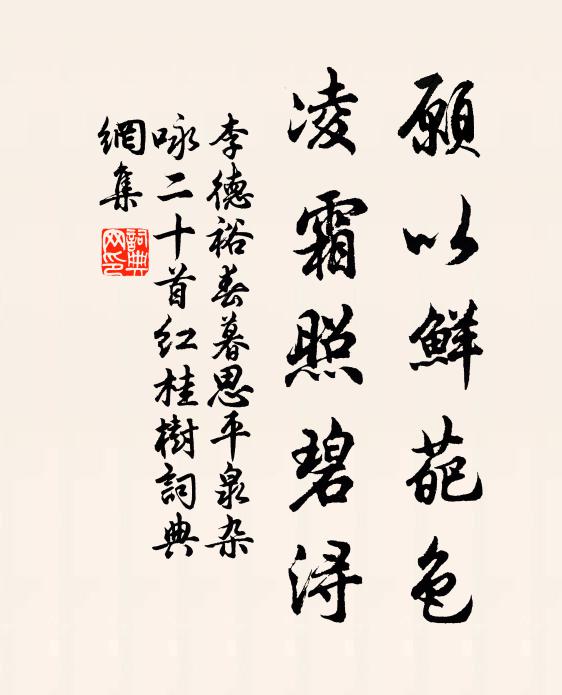 願以鮮葩色
凌霜照碧潯
李德裕春暮思平泉杂
咏二十首红桂樹詞典
網集
詞典網印